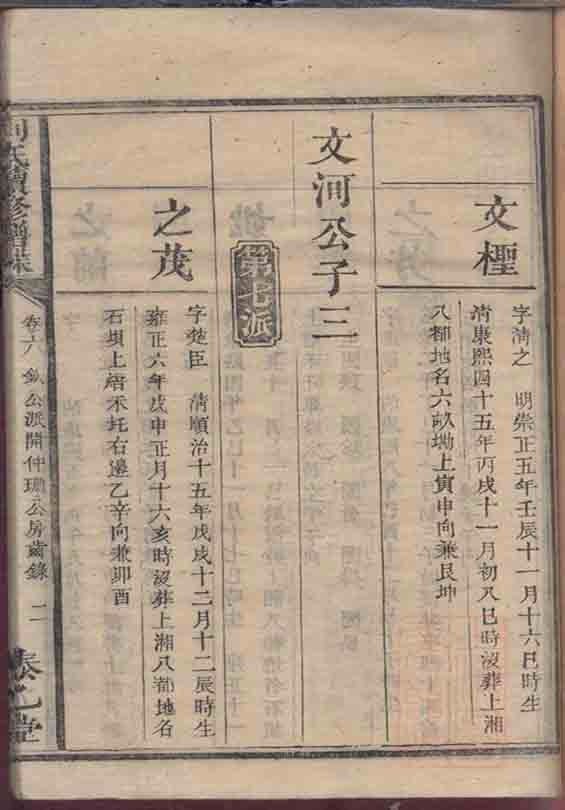 文檉
字清之 明崇正五年壬辰十一月十六巳時生
清康熙四十五年丙戌十一月初八巳時沒葬上湘
八都地名六畝坳上寅申向兼艮坤
文河公子三
第七派
之茂
字楚臣 清順治十五年戊戌十二月十二辰時生
雍正六年戊申正月十六亥時沒葬上湘八都地名
石埧上 禾圫右邊乙辛向兼卯酉
氏續修譜牒
卷六 公派開仲 公房齒錄 二
堂